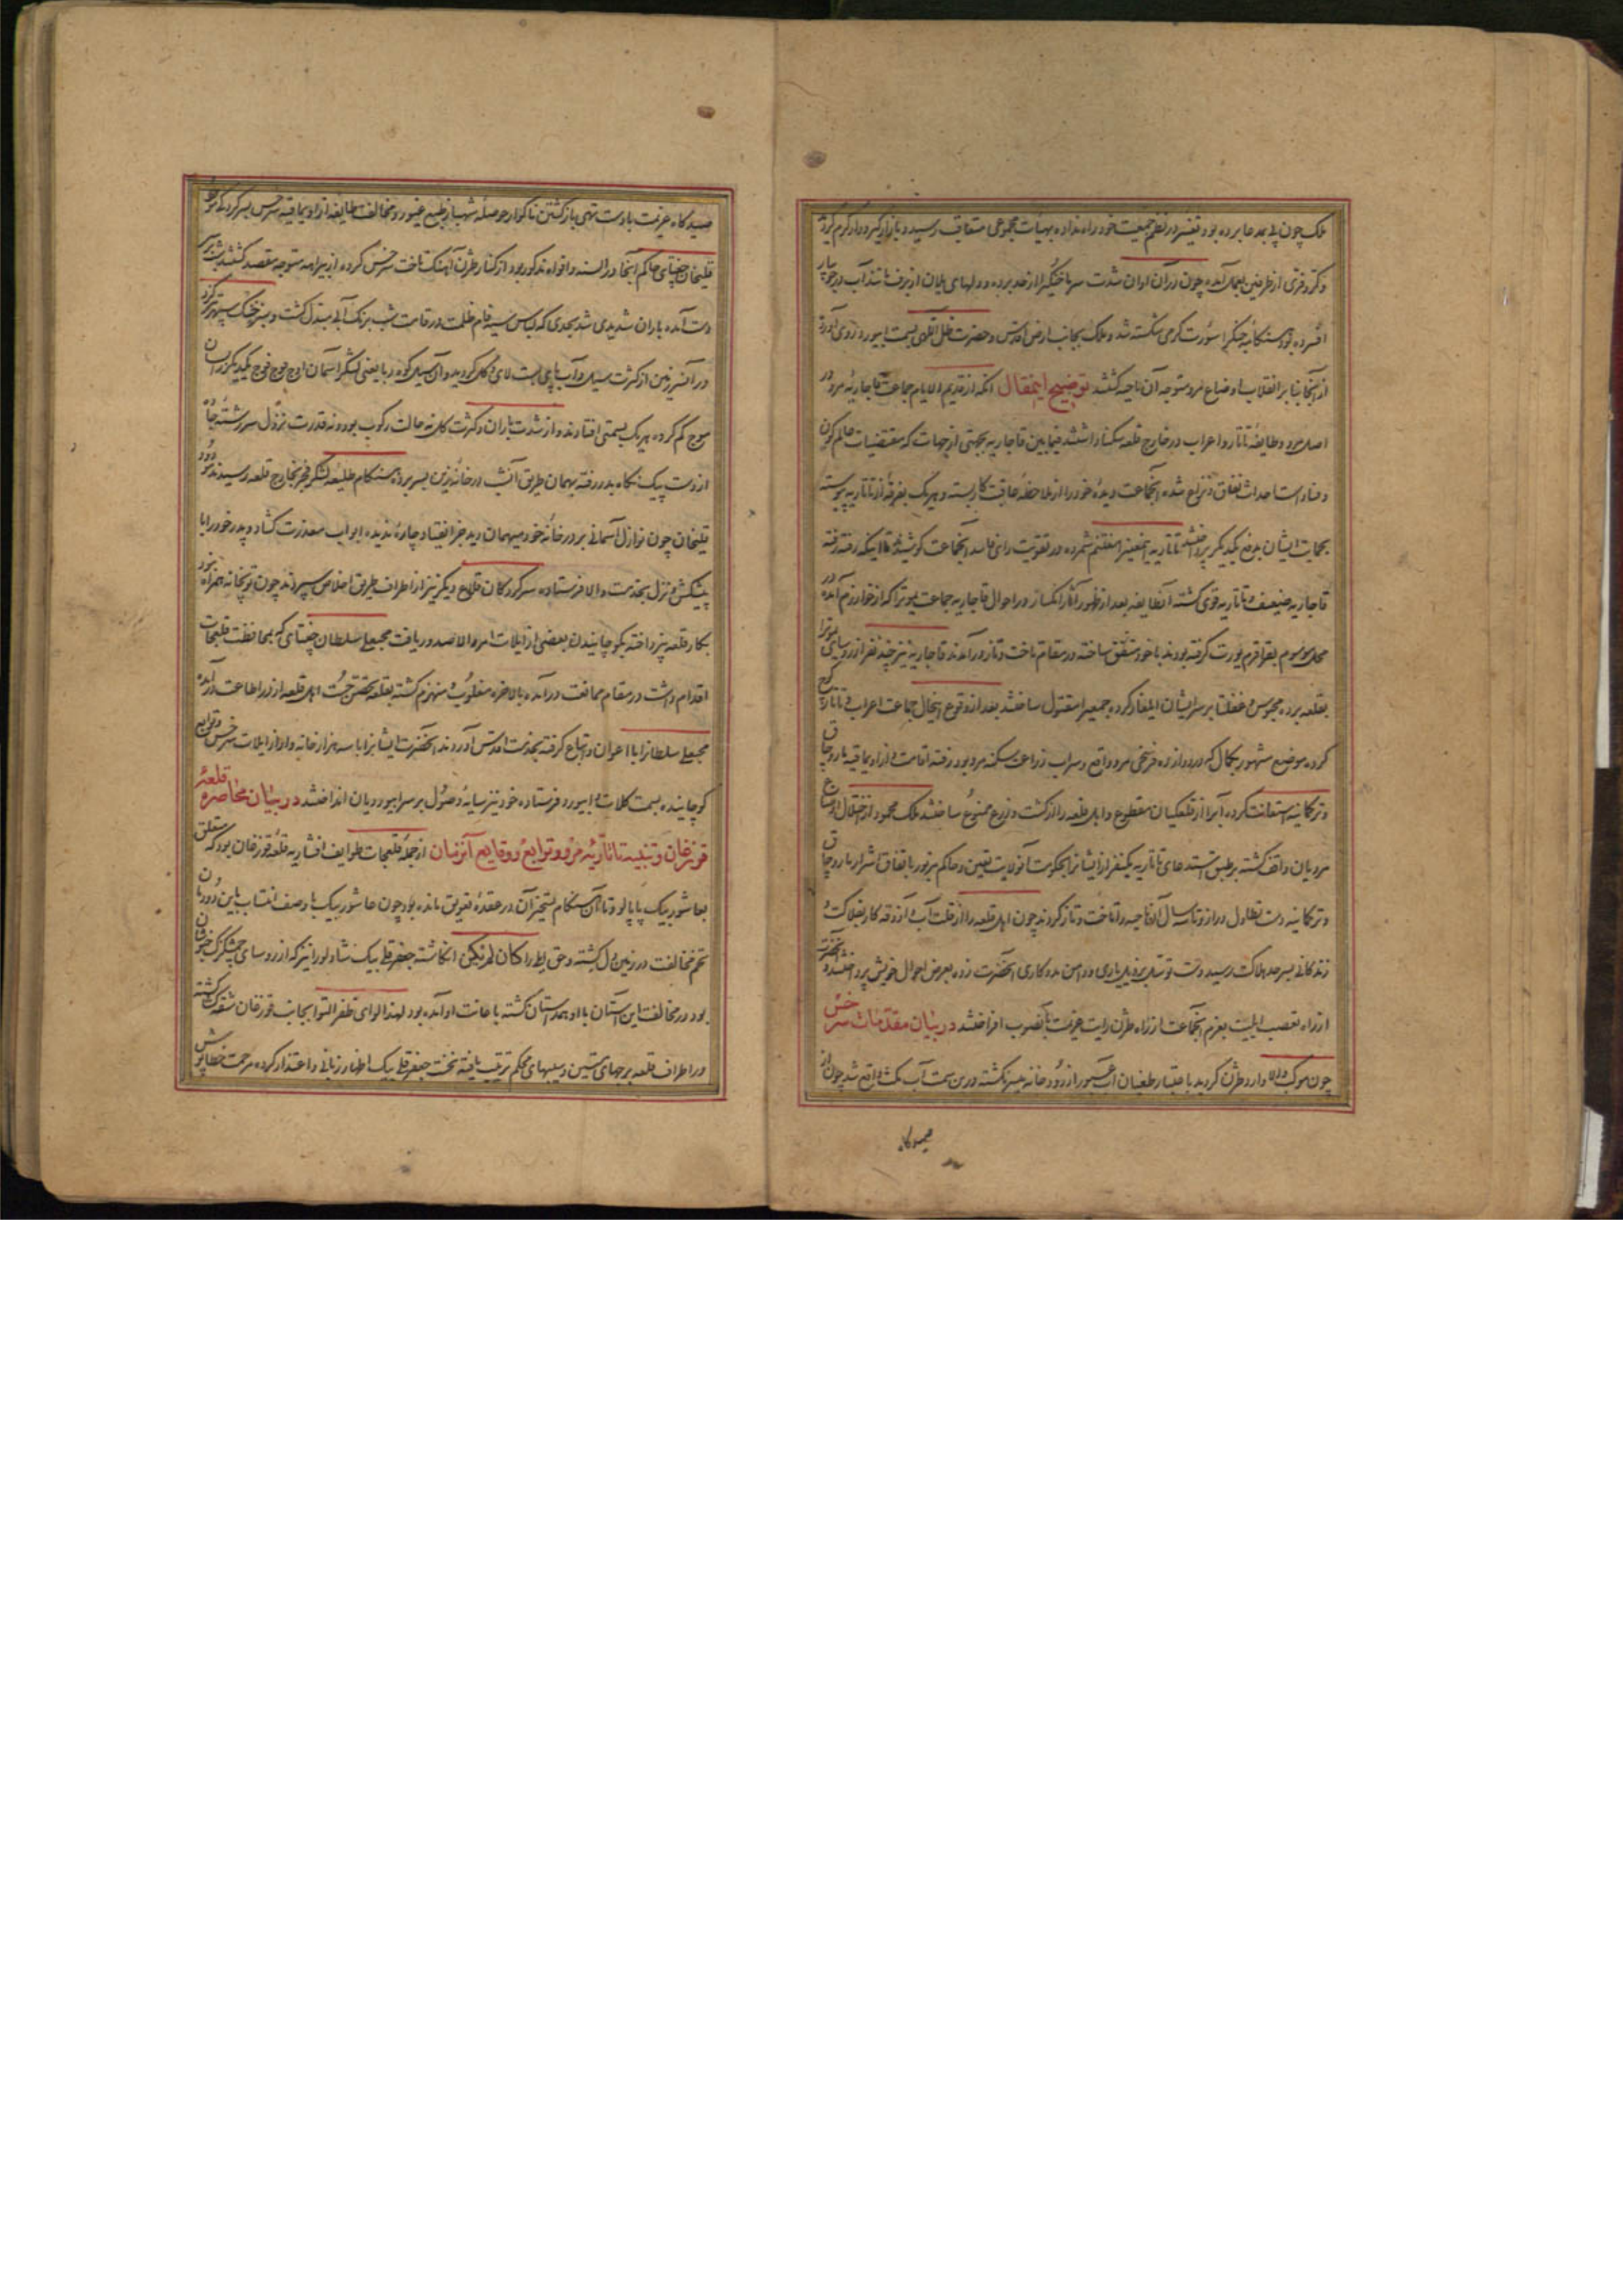 ملک چون پی بمدعا برده بود تغییر در نظم جمعیت خود راه نداده بهیأت مجموعی متعاقب رسید و بازار گیر و دار گرم گردید
و کر و فری از طرفین بعمل آمده چون در آن اوان شدت سرما خنجر از حد برده و دلهای یلان از برف تا تند آب در جویبار
افسرده بود هنگامه جنگ را سورت گرمی شکسته شد و ملک بجانب ارض اقدس و حضرت ظل اللهی بسمت ابیورد روی آورده
از آنجا بنا بر انقلاب اوضاع مرو متوجه آن ناحیه گشتند توضیح اینمقال آنکه از قدیم الایام جماعت قاجاریه مرو در
اصل مرو و طایفه تاتار و اعراب در خارج قلعه سکنا داشتند فیمابین قاجاریه بجهتی از جهات که مقتضیات عالم کون
و فساد است احداث نفاق و نزاع شده آنجماعت دیده خود را از ملاحظه عاقبت کار بسته و هر یک بفرقه از تاتاریه پیوسته
بحمایت ایشان بدفع یکدیگر پرداختند تاتاریه اینمعنی را مغتنم شمرده در تقویت رای فاسد آنجماعت کوشیدند تا اینکه رفته رفته
قاجاریه ضعیف و تاتاریه قوی گشته آنطایفه بعد از ظهور آثار انکسار در احوال قاجاریه جماعت یموت را که از خوارزم آمده در
محل موسوم بقراقرم یورت گرفته بودند با خود متفق ساخته در مقام تاخت و تاز در آمدند قاجاریه نیز چند نفر از روسای یموت را
بقلعه برده محبوس و غفلتا بر سر ایشان ایلغار کرده جمعی را مقتول ساختند بعد از وقوع اینحال جماعت اعراب و تاتار کوچ
کرده موضع مشهور بکال که در دوازده فرسخی مرو واقع و سراب زراعت سکنه مرو بود رفته اقامت و از اویماقیه یاروجاق
و ترکمانیه استعانت کرده آب را از قلعگیان مقطوع و اهل قلعه را از کشت و زرع ممنوع ساختند ملک محمود از اختلال اوضاع
مرویان واقف گشته بر طبق استدعای تاتاریه یکنفر از ایشانرا بحکومت آنولایت تعیین و حاکم مزبور باتفاق اشرار یاروجاق
و ترکمانیه دست تطاول دراز و تا سه سال آن ناحیه را تاخت و تاز کردند چون اهل قلعه را از قلت آب و آذوقه کار بفلاکت و
زندگانی بسرحد هلاکت رسید دست توسل بر ذیل یاری و دامن مددکاری آنحضرت زده بعرض احوال خویش پرداختند آنحضرت
از راه تعصب ایلیت بعزم آنجماعت از راه طژن رایت عزیمت بآنصوب افراختند در بیان مقدمات سرخس
چون موکب والا وارد طژن گردید باعتبار طغیان آب عبور از رودخانه میسر نگشته در بن سمت آب مکث واقع شد چون از
صیدگاه
صیدگاه عزیمت با دست تهی بازگشتن ناگوار حوصله شهباز طبع غیور و مخالفت طایفه از اویماقیه سرخس بسرکردگی
قلیجخان چغتای حاکم آنجا در السنه و افواه مذکور بود از کنار طژن آهنگ تاخت سرخس کرده از بیراهه متوجه مقصد گشتند
دست آمده باران شدیدی شد بحدی که لباس سیه فام ظلمت در قامت شب برنگ آبی مبدل گشت و سبز خنگ سپهر
در آنسرزمین از کثرت سیل و آب تا پای بست لای و گل گردید و آن سیل کوه ربا یعنی لشگر آسمان اوج فوج فوج یکدیگر را بسان
موج گم کرده هر یک بسمتی افتادند و از شدت باران و کثرت گل نه حالت رکوب بود و نه قدرت نزول سر رشته جاده
از دست پیک نگاه بدر رفته بهمان طریق آنشب در خانه زین بسر برده هنگام طلیعه لشکر فجر بخارج قلعه رسیدند
قلیجخان چون نوازل آسمانی بر در خانه خود میهمان دید جز انقیاد چاره ندیده ابواب معذرت گشاد و پدر خود را با
پیشکش و نزل بخدمت والا فرستاده سرکردگان قلاع دیگر نیز از اطراف طریق اخلاص سپردند چون توپخانه همراه نبود
بکار قلعه نپرداخته بکوچانیدن بعضی از ایلات امر والا صدور یافت محبعلی سلطان چغتای که بمحافظت قلیجخان
اقدام داشت در مقام ممانعت در آمده بالاخره مغلوب و منهزم گشته بقلعه تحصن جست اهل قلعه از در اطاعت در آمده
محبعلی سلطانرا با اعوان و اتباع گرفته بخدمت اقدس آوردند آنحضرت ایشانرا با سه هزار خانه وار از ایلات سرخس و توابع
کوچانیده بسمت کلات و ابیورد فرستاده خود نیز سایه وصول بر سر ابیوردیان انداختند در بیان محاصره قلعه
قوزغان و تنبیه تاتاریه مرو و توابع و وقایع آنزمان از جمله قلعجات طوایف افشاریه قلعه قوزغان بود که متعلق
بعاشور بیک پاپالو و تا آن هنگام تسخیر آن در عقده تعویق مانده بود چون عاشور بیک با وصف انتساب باین دودمان
تخم مخالفت در زمین دل کشته و حق ربط را کان لم یکن انگاشته جعفرقلی بیک شادلو را نیز که از روسای چمشگزک خبوشان
بود در مخالفت این آستان با او همداستان گشته باعانت او آمده بود لهذا لوای ظفر التوا بجانب قوزغان شقه گشا گشته
در اطراف قلعه برجهای متین و سیبهای محکم ترتیب یافته نخست جعفرقلی بیک اظهار زبانی و اعتذار کرده مرحمت خطاپوش